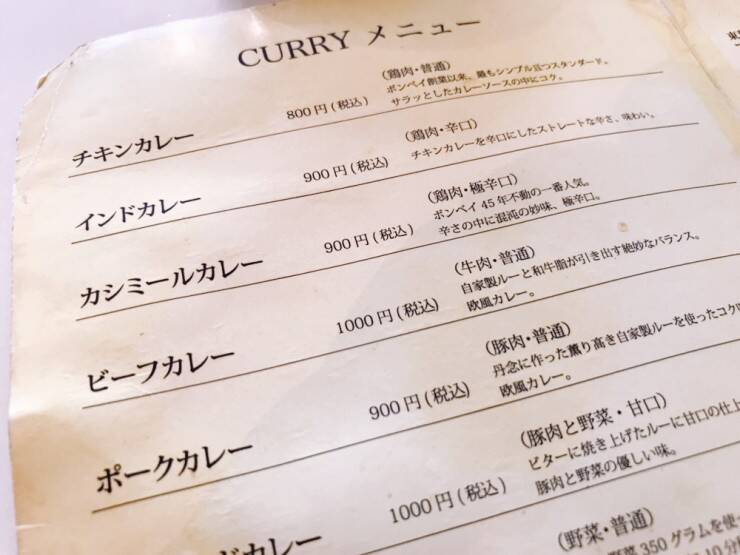 CURRY メニュー
チキンカレー 800円(税込) (鶏肉・普通)
ボンベイ創業以来、最もシンプル且つスタンダード。
サラッとしたカレーソースの中にコク。
インドカレー 900円(税込) (鶏肉・辛口)
チキンカレーを辛口にしたストレートな辛さ、味わい。
カシミールカレー 900円(税込) (鶏肉・極辛口)
ボンベイ45年不動の一番人気。
辛さの中に混沌の妙味、極辛口。
ビーフカレー 1000円(税込) (牛肉・普通)
自家製ルーと和牛脂が引き出す絶妙なバランス。
欧風カレー。
ポークカレー 900円(税込) (豚肉・普通)
丹念に作った薫り高き自家製ルーを使ったコク
欧風カレー。
カレー 1000円(税込) (豚肉と野菜・甘口)
ビターに焼き上げたルーに甘口の仕上
豚肉と野菜の優しい味。
(野菜・普通)
350グラムを使